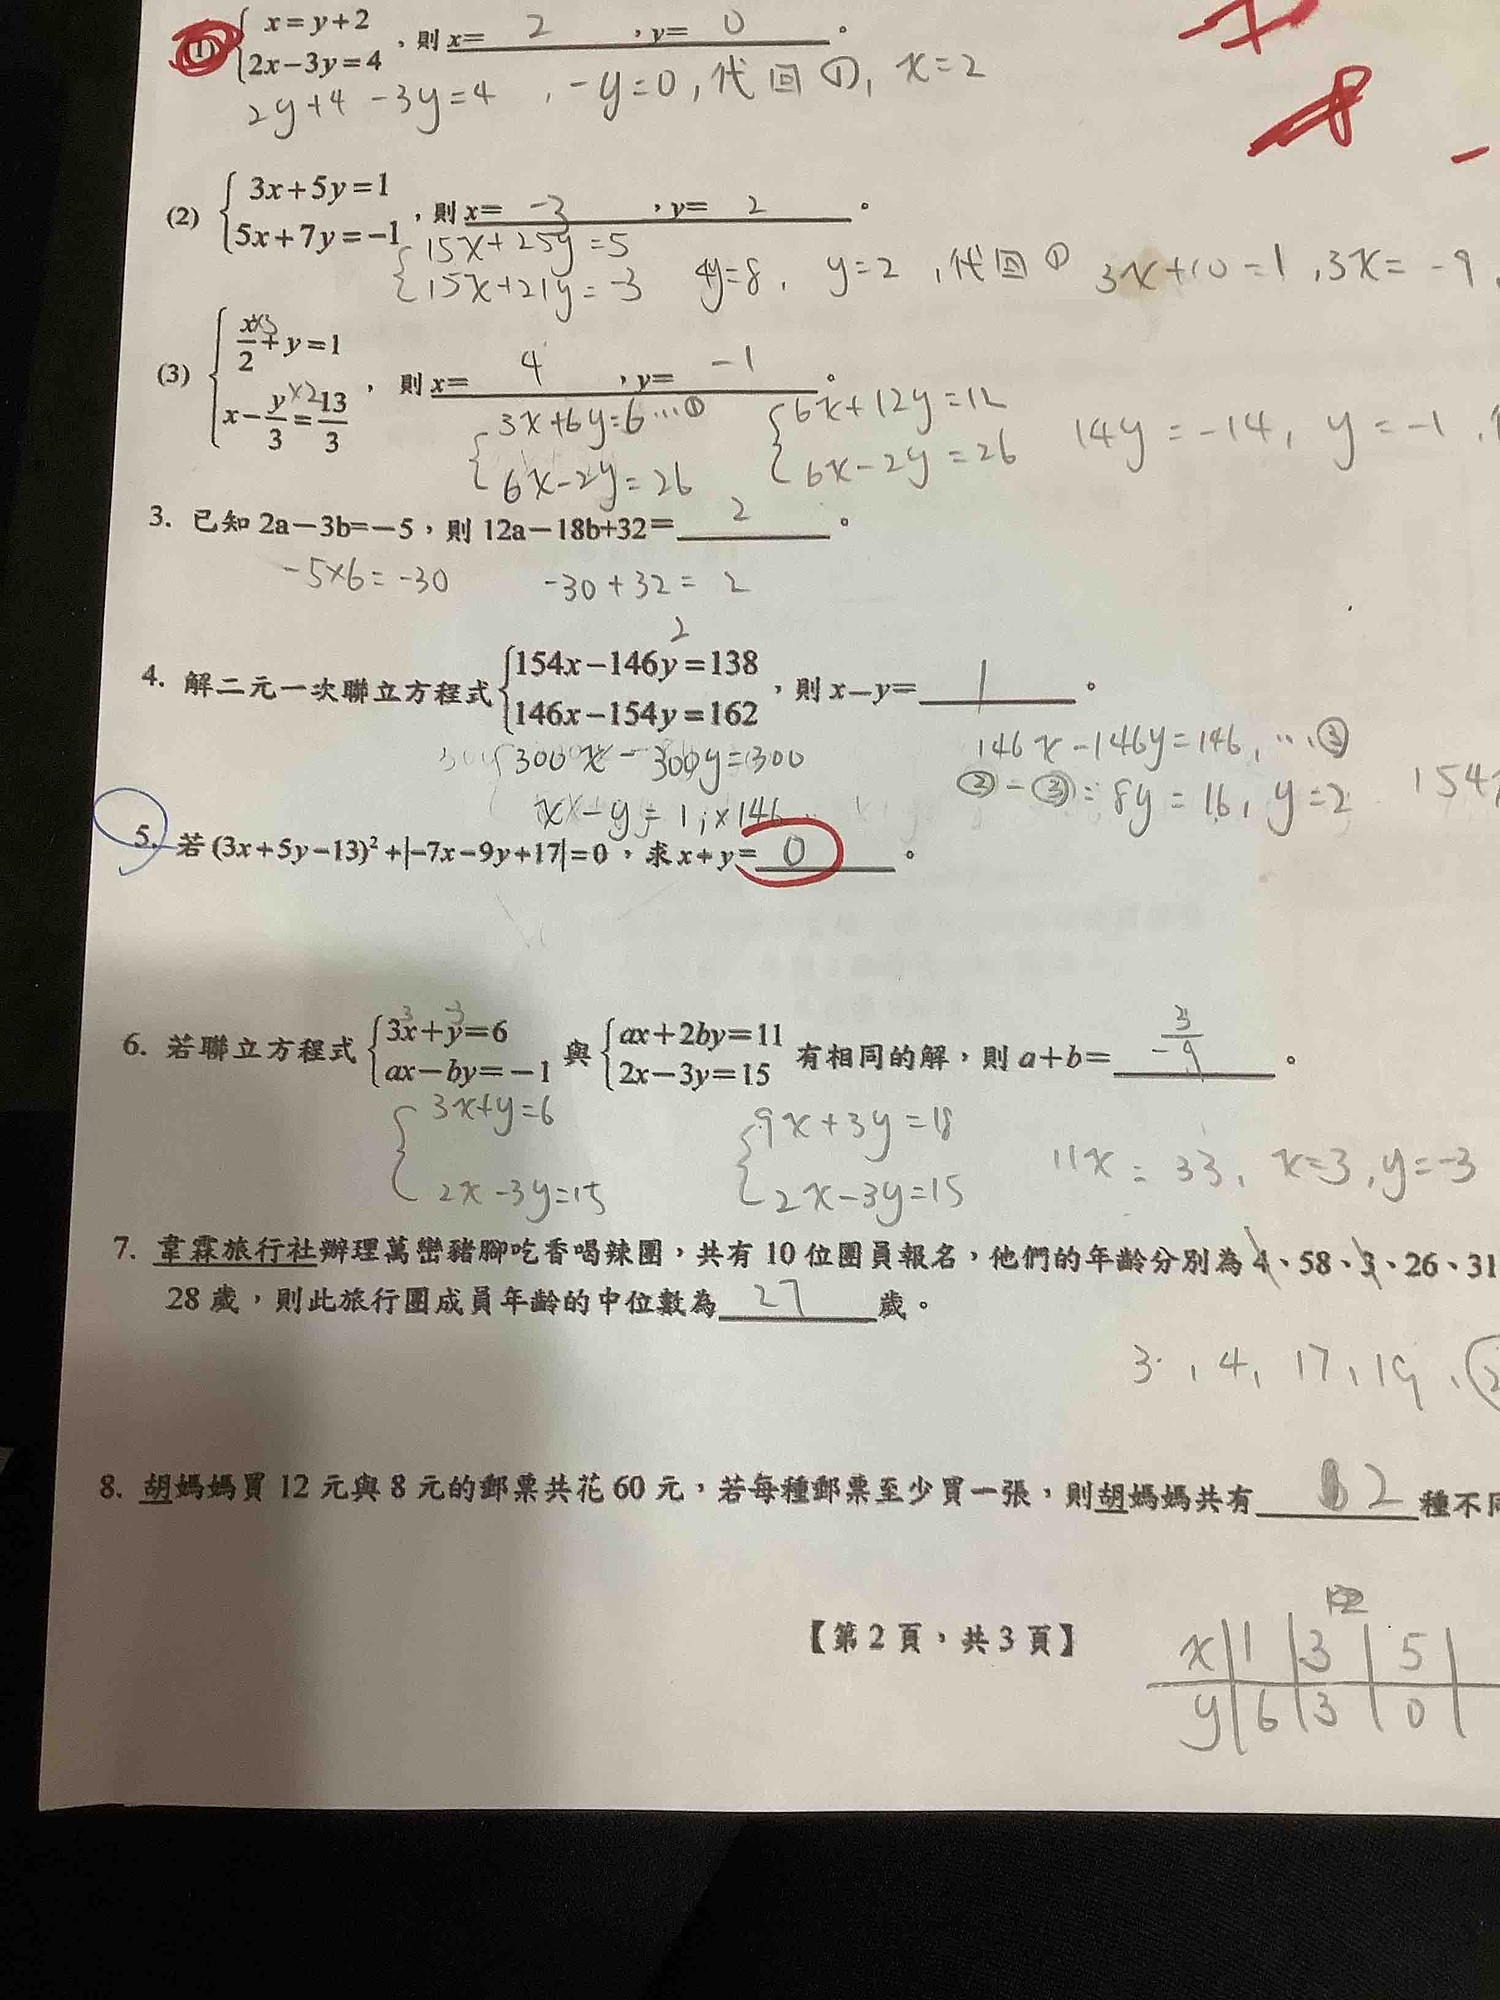 (1) { x=y+2
2x-3y=4 ,則 x= 2 ,y= 0 。
2y+4-3y=4 , -y=0,代回①, x=2
-8
(2) { 3x+5y=1
5x+7y=-1 ,則 x= -3 ,y= 2 。
{ 15x+25y=5
15x+21y=-3 4y=8, y=2 ,代回① 3x+10=1 ,3x=-9
(3) { x/2+y=1
x-y/3=13/3 , 則 x= 4 ,y= -1 。
{ 3x+6y=6…① { 6x+12y=12
6x-2y=26 6x-2y=26 14y=-14, y=-1 ,
3. 已知 2a-3b=-5,則 12a-18b+32= 2 。
-5×6=-30 -30+32=2
2
4. 解二元一次聯立方程式 { 154x-146y=138
146x-154y=162 ,則 x-y= 1 。
300x-300y=300 146x-146y=146,…③
x-y=1,×146 ②-③=8y=16, y=2 154
5. 若(3x+5y-13)²+|-7x-9y+17|=0,求 x+y= 0 。
6. 若聯立方程式 { 3x+y=6
ax-by=-1 與 { ax+2by=11
2x-3y=15 有相同的解,則 a+b= 。
{ 3x+y=6 { 9x+3y=18
2x-3y=15 2x-3y=15 11x=33, x=3,y=-3
7. 韋霖旅行社辦理萬巒豬腳吃香喝辣團,共有 10 位團員報名,他們的年齡分別為 4、58、3、26、31
28 歲,則此旅行團成員年齡的中位數為 27 歲。
3,4,17,19,
8. 胡媽媽買 12 元與 8 元的郵票共花 60 元,若每種郵票至少買一張,則胡媽媽共有 2 種不同
【第 2 頁,共 3 頁】
x 1 3 5
y 6 3 0